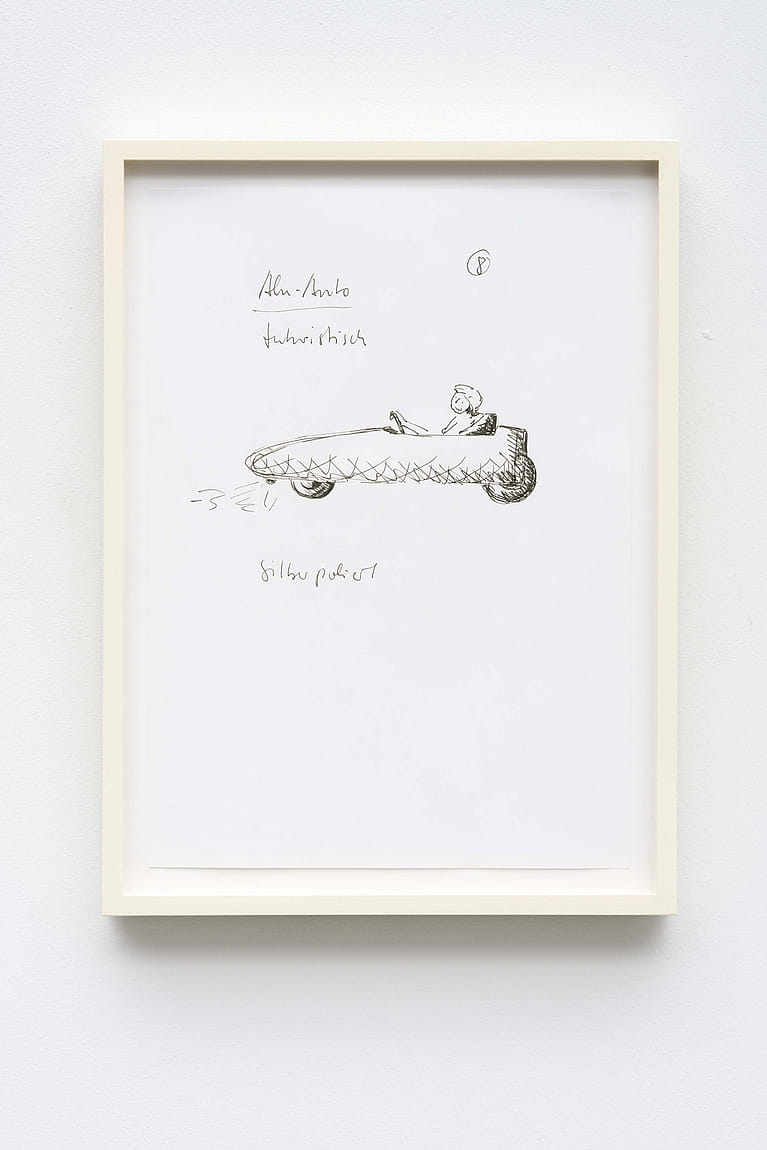 8
Alu-Auto
futuristisch
Silber poliert